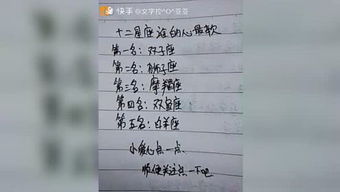 快手
@文字控^O^荳荳
十二星座谁的心最软
第一名：双子座
第二名：狮子座
第三名：摩羯座
第四名：双鱼座
第五名：白羊座
小爱心点一点
顺便关注点一下吧